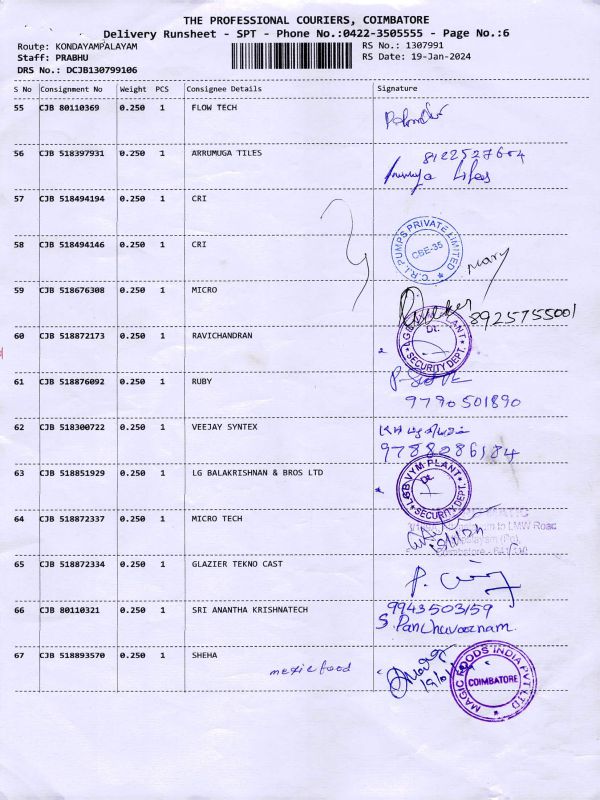 THE PROFESSIONAL COURIERS, COIMBATORE
Delivery Runsheet - SPT - Phone No.:0422-3505555 - Page No.:6
Route: KONDAYAMPALAYAM RS No.: 1307991
Staff: PRABHU RS Date: 19-Jan-2024
DRS No.: DCJB130799106
S No Consignment No Weight PCS Consignee Details Signature
55 CJB 80110369 0.250 1 FLOW TECH
56 CJB 518397931 0.250 1 ARRUMUGA TILES
8122527604
57 CJB 518494194 0.250 1 CRI
58 CJB 518494146 0.250 1 CRI
C.R.I. PUMPS PRIVATE LIMITED
CBE-35
mary
59 CJB 518676308 0.250 1 MICRO
8925755001
60 CJB 518872173 0.250 1 RAVICHANDRAN
PLANT
SECURITY DEPT.
61 CJB 518876092 0.250 1 RUBY
9790501890
62 CJB 518300722 0.250 1 VEEJAY SYNTEX
9788086184
63 CJB 518851929 0.250 1 LG BALAKRISHNAN & BROS LTD
LGB VYM PLANT
SECURITY DEPT.
64 CJB 518872337 0.250 1 MICRO TECH
to LMW Road
65 CJB 518872334 0.250 1 GLAZIER TEKNO CAST
66 CJB 80110321 0.250 1 SRI ANANTHA KRISHNATECH
9943503159
S. Panchuvoornam.
67 CJB 518893570 0.250 1 SHEHA
MAGIC FOODS INDIA PVT LTD
COIMBATORE